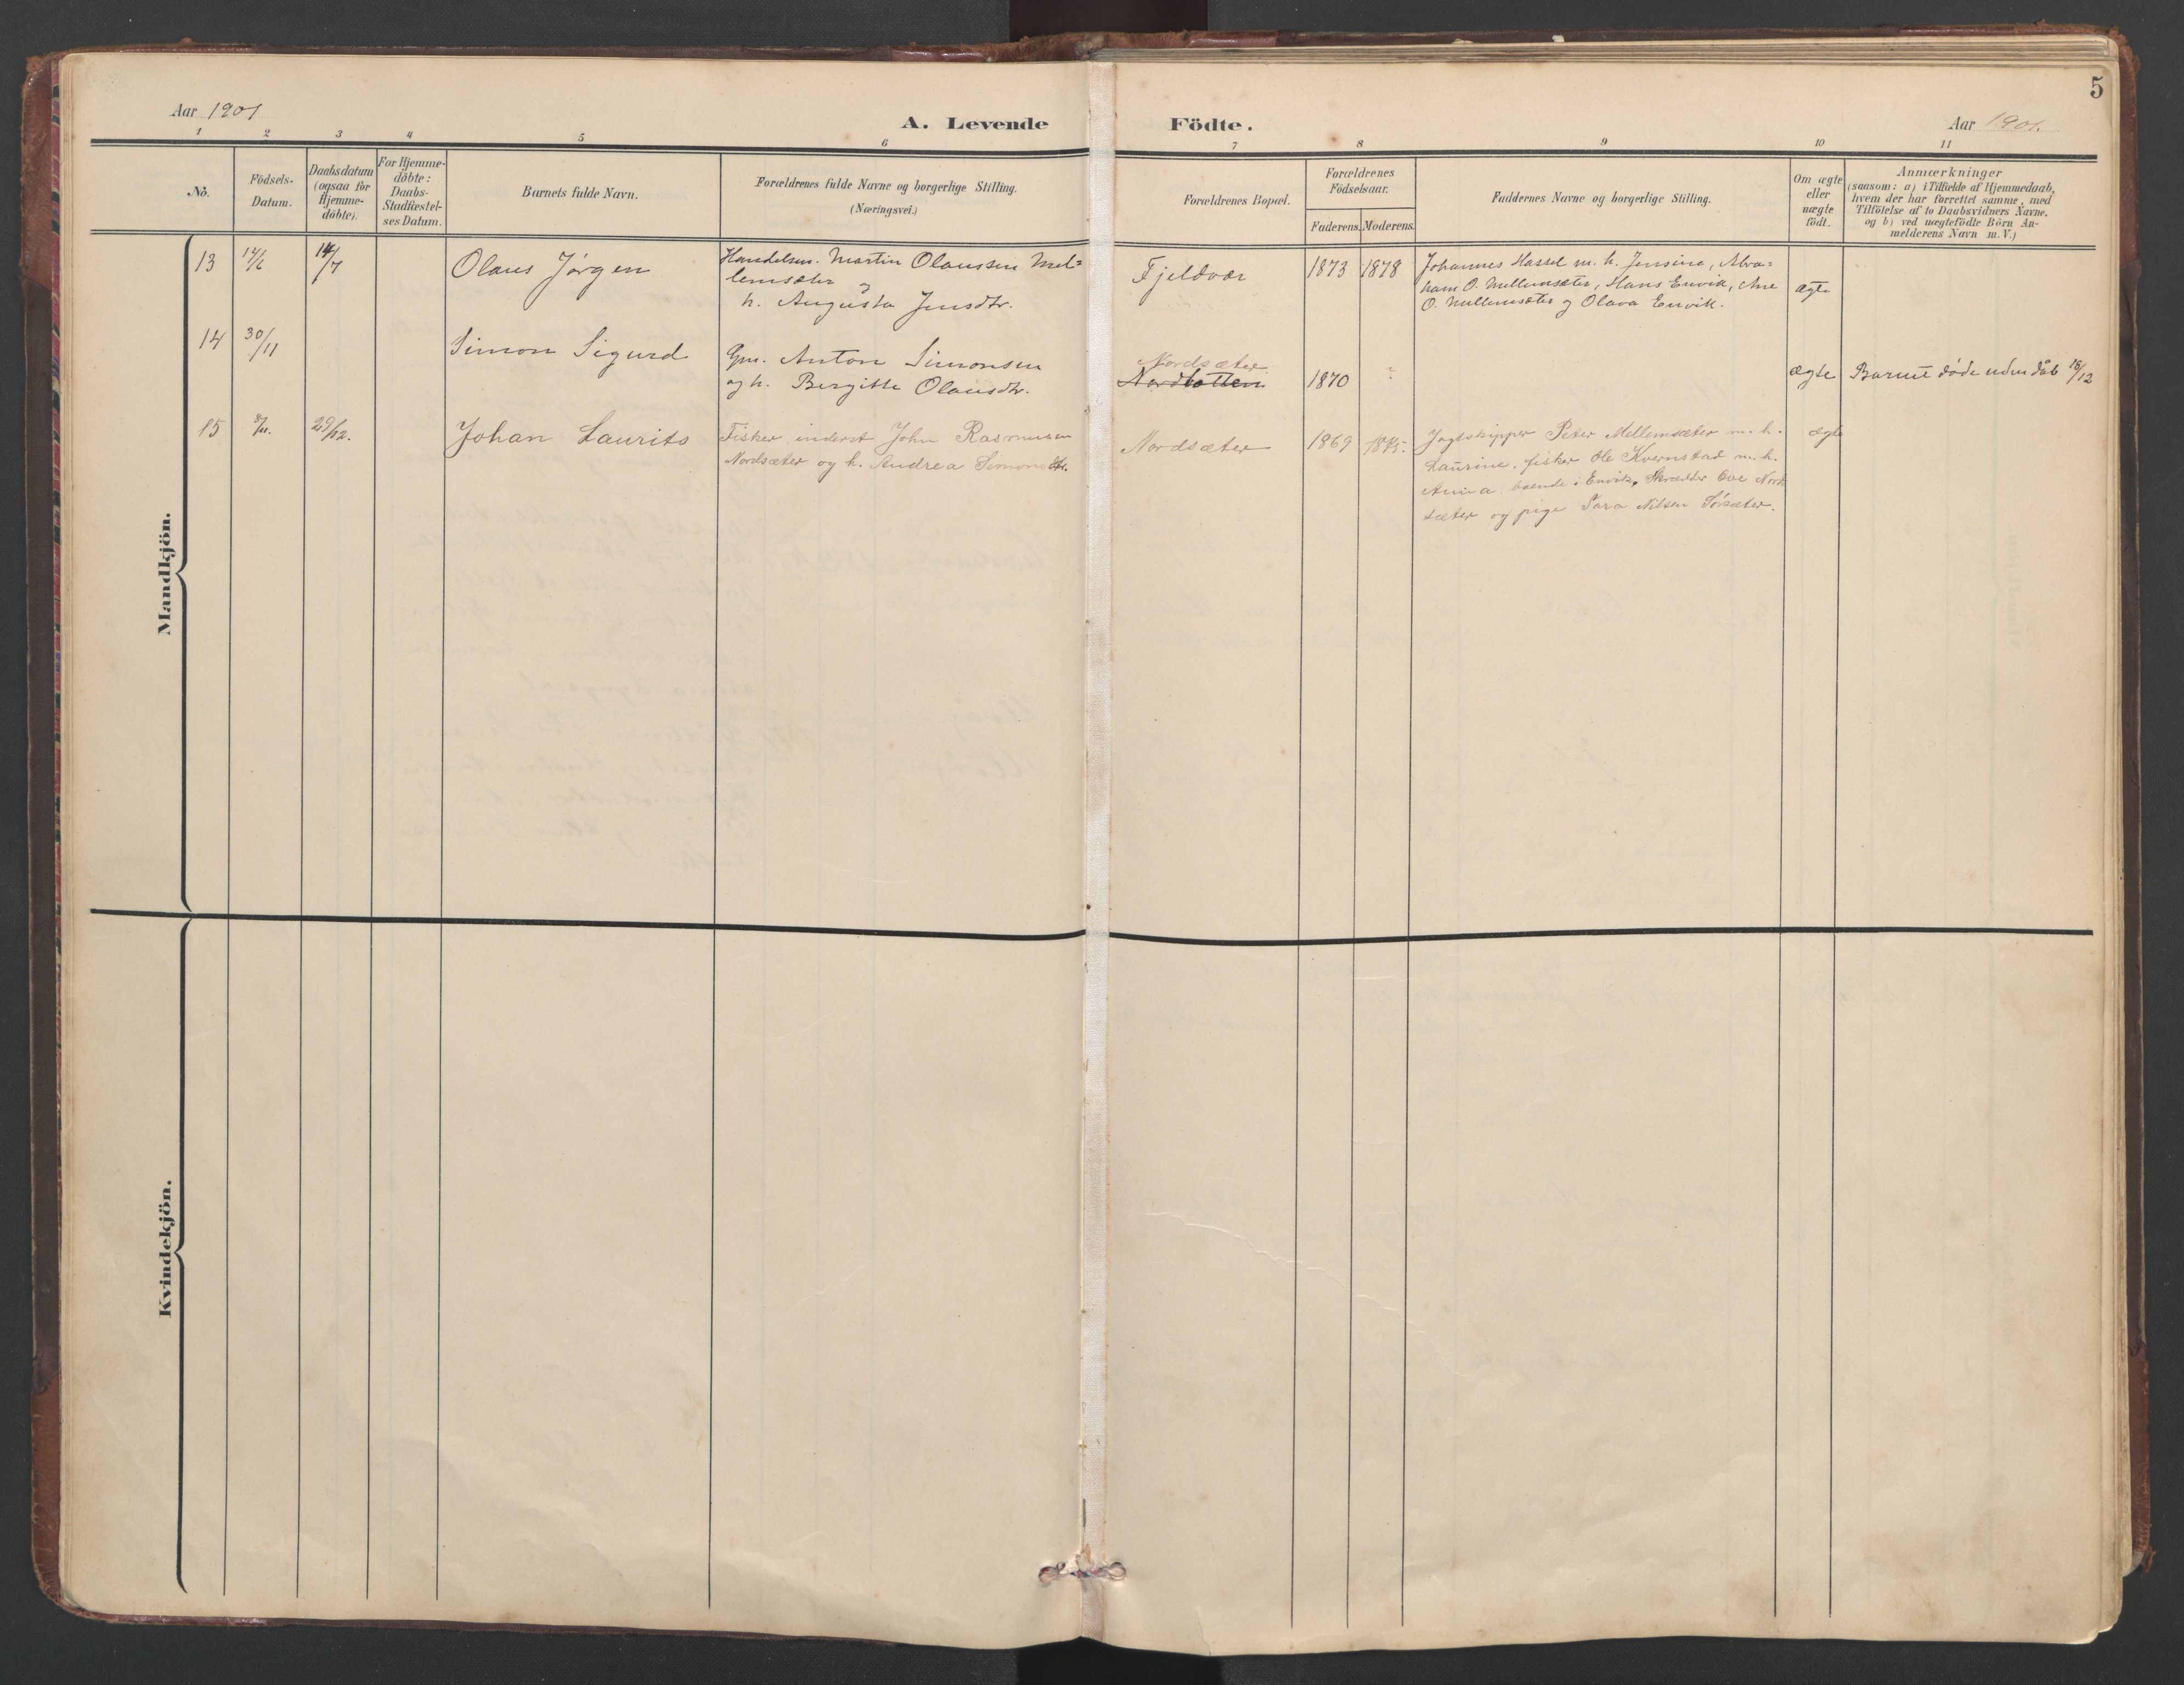 5
Aar 1901
A. Levende Födte.
Aar 1901.
1 2 3 4 5 6 7 8 9 10 11
No.
Födsels-
Datum.
Daabsdatum
(ogsaa for
Hjemme-
döbte).
For Hjemme-
döbte:
Daabs-
Stadfæstel-
ses Datum.
Barnets fulde Navn.
Forældrenes fulde Navne og borgerlige Stilling.
(Næringsvei.)
Forældrenes Bopæl.
Forældrenes
Födselsaar.
Faderens. Moderens.
Faddernes Navne og borgerlige Stilling.
Om ægte
eller
uægte
födt.
Anmærkninger
(saasom: a) i Tilfælde af Hjemmedaab,
hvem der har forrettet samme, med
Tilföielse af to Daabsvidners Navne,
og b) ved uægtefödte Börn An-
melderens Navn m. V.)
Mandkjön.
13
14/6
14/7
Olaus Jørgen
Handelsm. Martin Olaussen Mel=
lemsæter og
h. Augusta Jensdtr.
Fjeldvær
1873
1878
Johannes Hassel m. h. Jensine, Abra=
ham O. Mellemsæter, Hans Envik, Ane
O. Mellemsæter og Olava Envik.
ægte
14
30/11
Simon Sigurd
Gm. Anton Simonsen
og h. Bergitte Olausdtr.
Nordsæter
Nordbotten
1870
?
ægte
Barnet døde uden dåb 16/12
15
/11.
29/12.
Johan Laurits
Fisker, inderst John Rasmussen
Nordsæter og h. Andrea Simonsdtr.
Nordsæter
1869
1875.
Jagtskipper Peter Mellemsæter m. h.
Laurine, fisker Ole Kvernstad m. h.
Anna, boende i Envik, Skrædder Ove Nord
sæter og pige Sara Nilsen Sørsæter.
ægte
Kvindekjön.